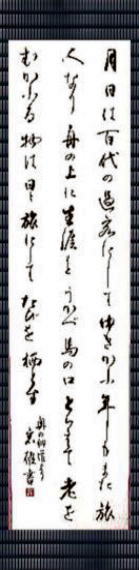 月日は百代の過客にして ゆきかふ年もまた旅
人なり 舟の上に生涯をうかべ馬の口とらえて老を
むかふる物は日々旅にして たびを栖とす
奥の細道より